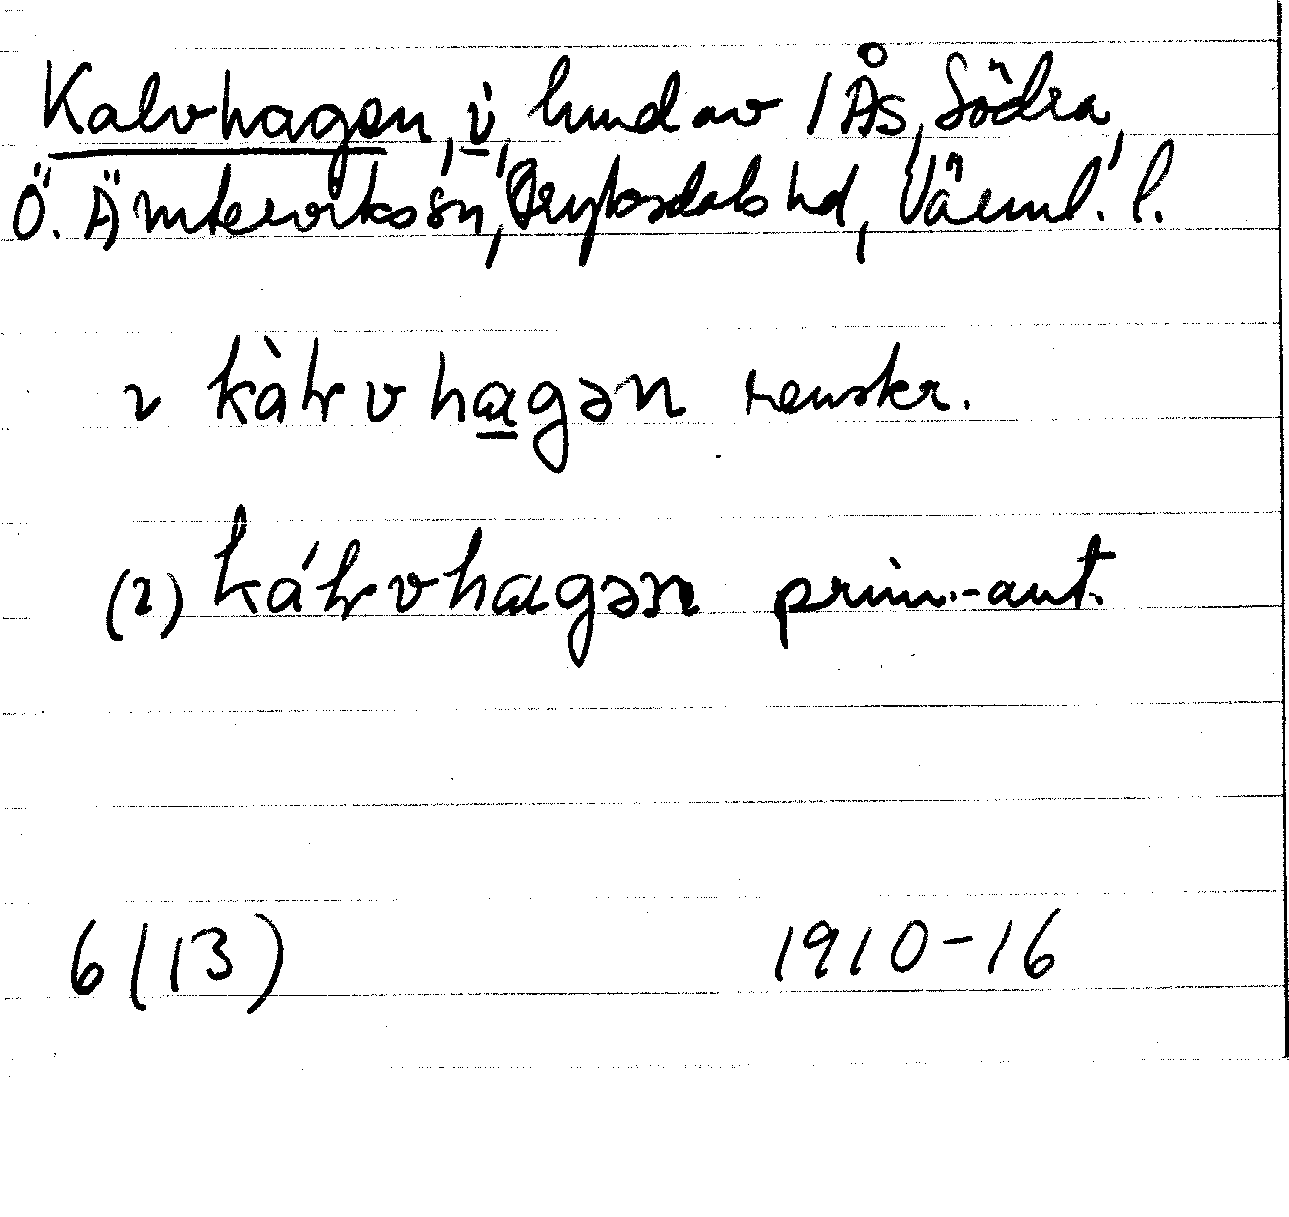 Kalvhagen, i, hund av 1 Ås, Södra,
Ö. Ämterviks sn, Fryksdals hd, Värml. l.
2 kàlvhagən renskr.
(2) kálvhagən prim.-ant.
6 (13) 1910-16